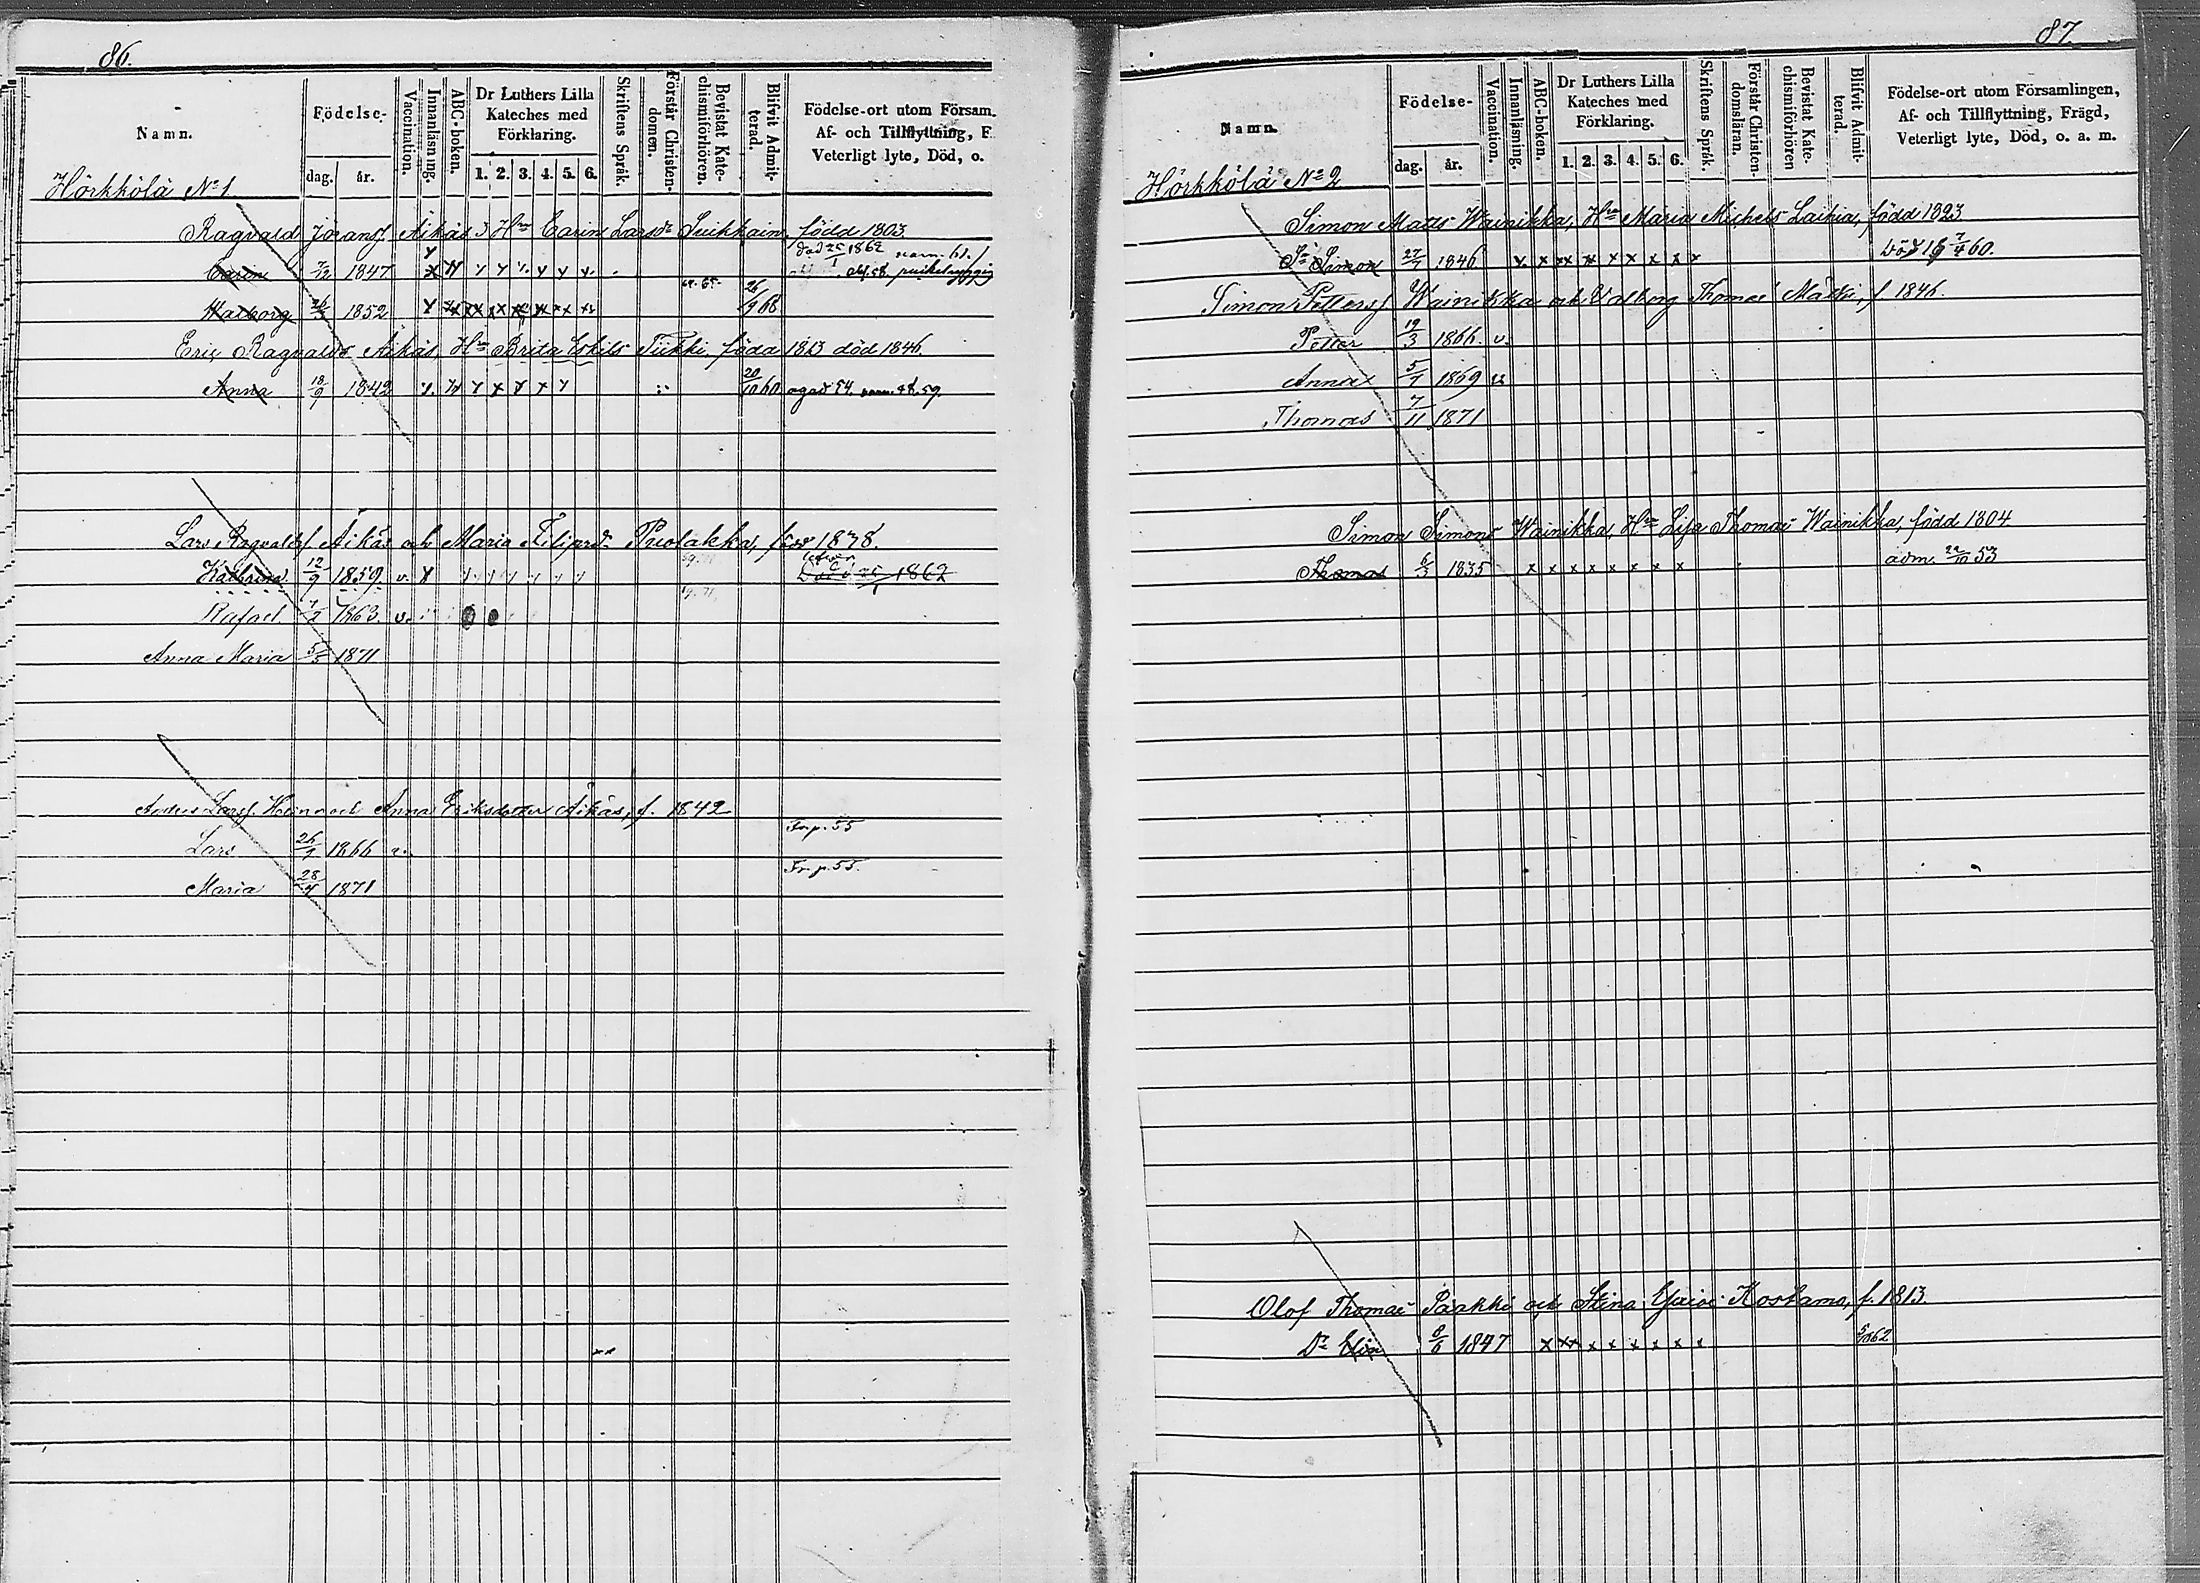 86.
Namn.
Födelse-
dag. år.
Vaccination.
Innanläsning.
ABC-boken.
Dr Luthers Lilla Kateches med Förklaring.
1. 2. 3. 4. 5. 6.
Skriftens Språk.
Förstår Christen-domen.
Bevistat Kate-chismiförhören.
Blifvit Admit-terad.
Födelse-ort utom Försam.
Af- och Tillflyttning, F
Veterligt lyte, Död, o.
Hörkkölä No 1
Ragvald Göransf. Äikäs Hru Carin Larsdr Suikkain, född 1803
död 25/1 1862
Carin 7/12 1847
Walborg 26/3 1852 26/9 68
Eric Ragvalds Äikäs, Hru Brita Eskils Tiikki, föda 1813 död 1846.
Anna 18/9 1842 20/10 60.
Lars Ragvaldsf Äikäs och Maria Filipsdr Puolakka, född 1838.
Kathrina 12/9 1859. v. 1862
Rafael 7/2 1863. v.
Anna Maria 5/5 1871
Anders Larsf. Heinno och Anna Eriksdotter Äikäs, f. 1842
Fr. p. 55
Lars 26/9 1866 v.
Fr. p. 55.
Maria 28/7 1871
87.
Namn.
Födelse-
dag. år.
Vaccination.
Innanläsning.
ABC-boken.
Dr Luthers Lilla Kateches med Förklaring.
1. 2. 3. 4. 5. 6.
Skriftens Språk.
Förstår Christen-domsläran.
Bevistat Kate-chismiförhören
Blifvit Admit-terad.
Födelse-ort utom Församlingen,
Af- och Tillflyttning, Frägd,
Veterligt lyte, Död, o. a. m.
Hörkkölä No 2
Simon Matts Wainikka, Hru Maria Michels Laihia, född 1823
Sn Simon 27/7 1846. 60.
Simon Pettersf. Wainikka och Valborg Thomae Mättö, f. 1846.
Petter 19/3 1866. v.
Anna 5/7 1869 v.
Thomas 7/11 1871
Simon Simons Wainikka, Hru Lisa Thomae Wainikka, född 1804
Thomas 6/3 1835 adm. 22/10 53
Olof Thomae Paakki och Stina Koskama, f. 1813.
Dr Elin 8/6 1847 62